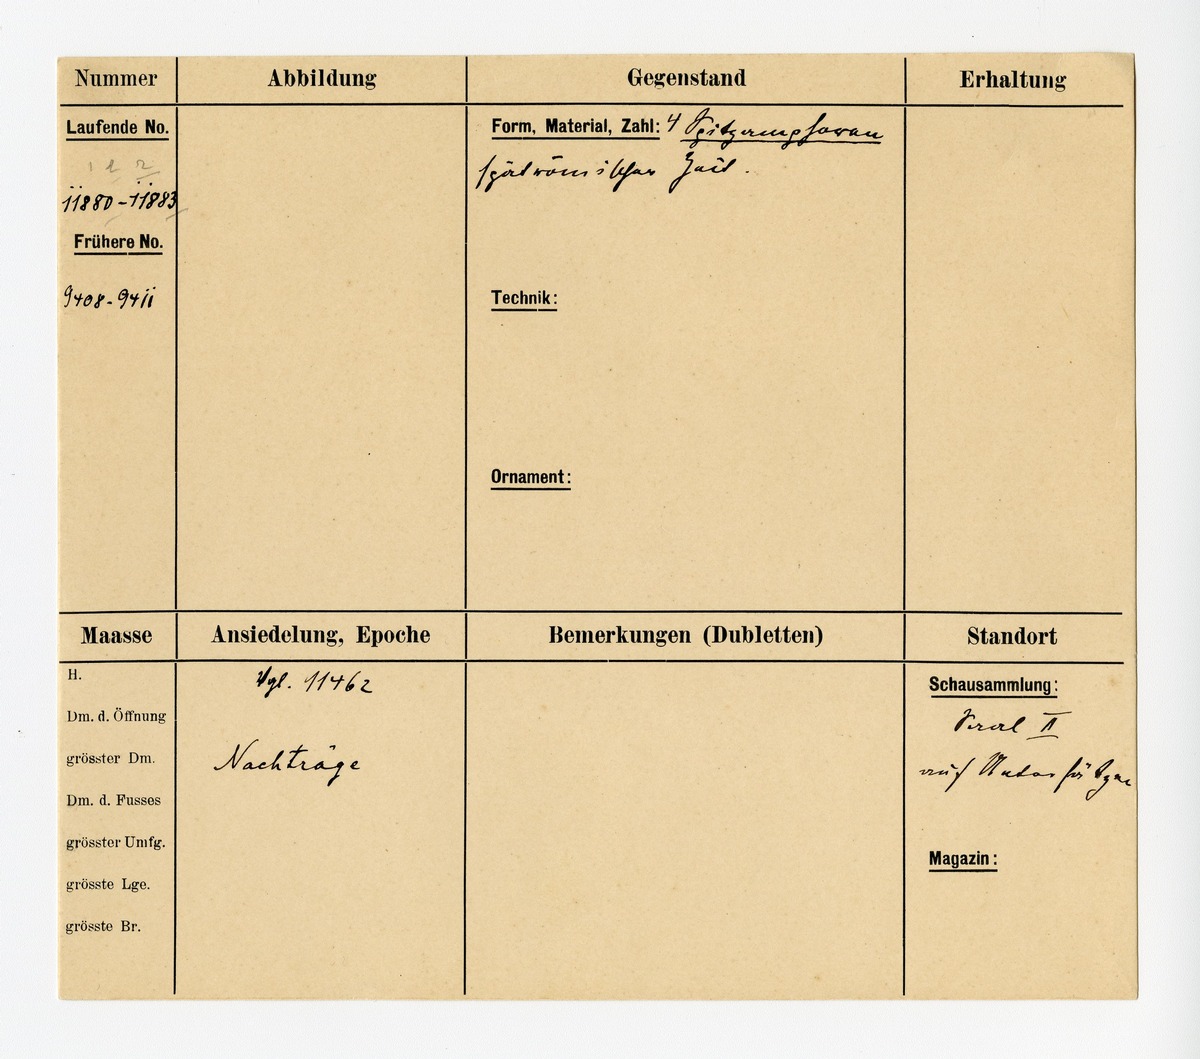 Nummer
Abbildung
Gegenstand
Erhaltung
Laufende No.
11880-11883
Frühere No.
9408-9411
Form, Material, Zahl: 4 Spitzamphoren
spätrömischer Zeit.
Technik:
Ornament:
Maasse
Ansiedelung, Epoche
Bemerkungen (Dubletten)
Standort
H.
Dm. d. Öffnung
grösster Dm.
Dm. d. Fusses
grösster Umfg.
grösste Lge.
grösste Br.
Vgl. 11462
Nachträge
Schausammlung:
Saal II
auf Untersätzen
Magazin: